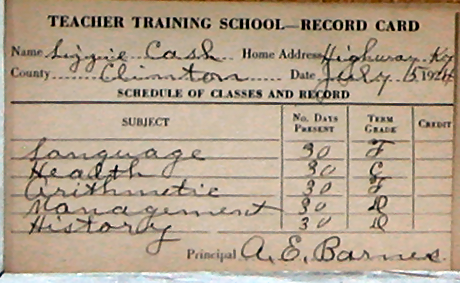 TEACHER TRAINING SCHOOL—RECORD CARD
Name Lizzie Cash Home Address Highway, Ky
County Clinton Date July 15, 192
SCHEDULE OF CLASSES AND RECORD
SUBJECT No. DAYS PRESENT TERM GRADE CREDIT
Language 30 F
Health 30 C
Arithmetic 30 F
Management 30 D
History 30 D
Principal A. E. Barnes